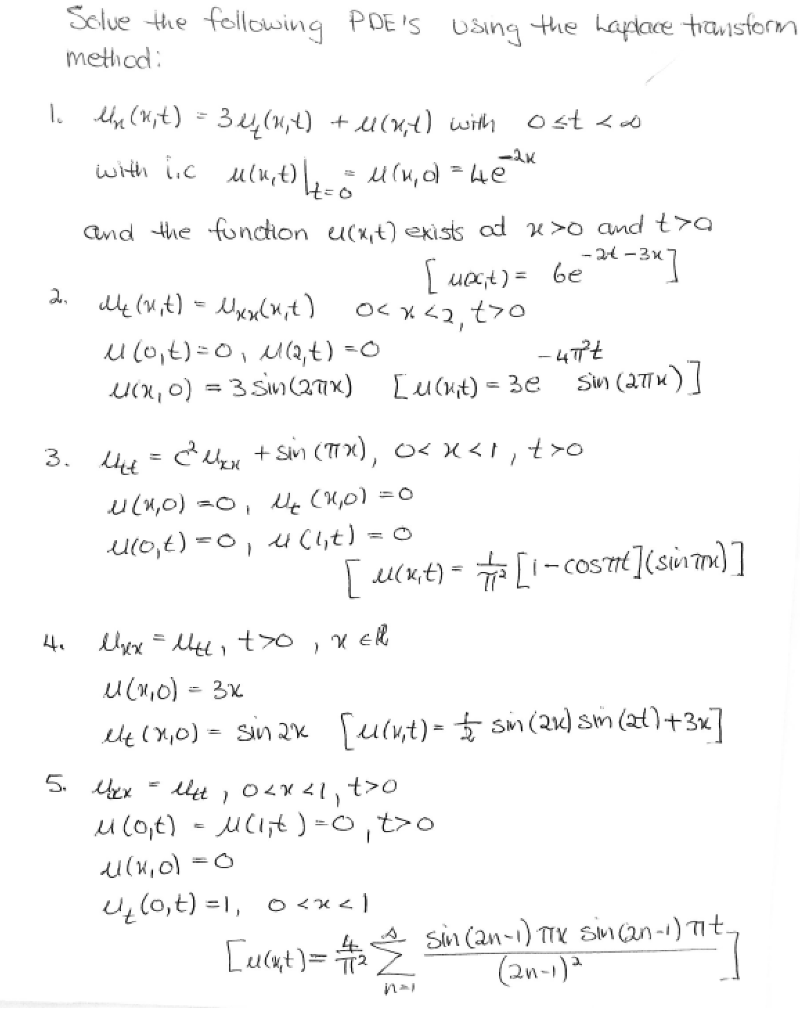 Solve the following PDE's using the Laplace transform
method:
1. uₓ(x,t) = 3uₜ(x,t) + u(x,t) with 0 ≤ t < ∞
with i.c u(x,t)|ₜ₌₀ = u(x,0) = 4e^(-2x)
and the function u(x,t) exists at x>0 and t>0
[u(x,t) = 6e^(-2t-3x)]
2. uₜ(x,t) = uₓₓ(x,t) 0< x <2, t>0
u(0,t)=0, u(2,t)=0
u(x,0) = 3 sin(2πx) [u(x,t) = 3e^(-4π²t) sin(2πx)]
3. uₜₜ = c²uₓₓ + sin(πx), 0< x <1, t>0
u(x,0) =0, uₜ(x,0) =0
u(0,t) =0, u(1,t) = 0
[u(x,t) = 1/π² [1-cosπt](sinπx)]
4. uₓₓ = uₜₜ, t>0, x ∈ ℝ
u(x,0) = 3x
uₜ(x,0) = sin2x [u(x,t) = 1/2 sin(2x) sin(2t)+3x]
5. uₓₓ = uₜₜ, 0<x<1, t>0
u(0,t) = u(1,t) = 0, t>0
u(x,0) = 0
uₜ(0,t) =1, 0 <x <1
[u(x,t) = 4/π² ∑ₙ₌₁ sin(2n-1)πx sin(2n-1)πt / (2n-1)²]